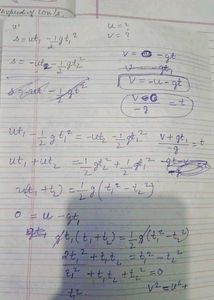 u'
u = ?
v = ?
s = ut₁ - 1/2 gt₁²
v = - gt
s = -ut₂ - 1/2 gt₂²
v = - gt₁
v = -u - gt
- 1/2 gt²
= t
-g
ut₁ - 1/2 gt₁² = -ut₂ - 1/2 gt₂²
v + gt₁ / -g = t
ut₁ + ut₂ = - 1/2 gt₂² + 1/2 gt₁²
u(t₁ + t₂) = 1/2 g(t₁² - t₂²)
0 = u - gt₁
gt₁(t₁ + t₂) = 1/2 g(t₁² - t₂²)
2t₁² + t₁t₂ = t₁² - t₂²
t₁² + t₁t₂ + t₂² = 0
t₁²
v² = u² +